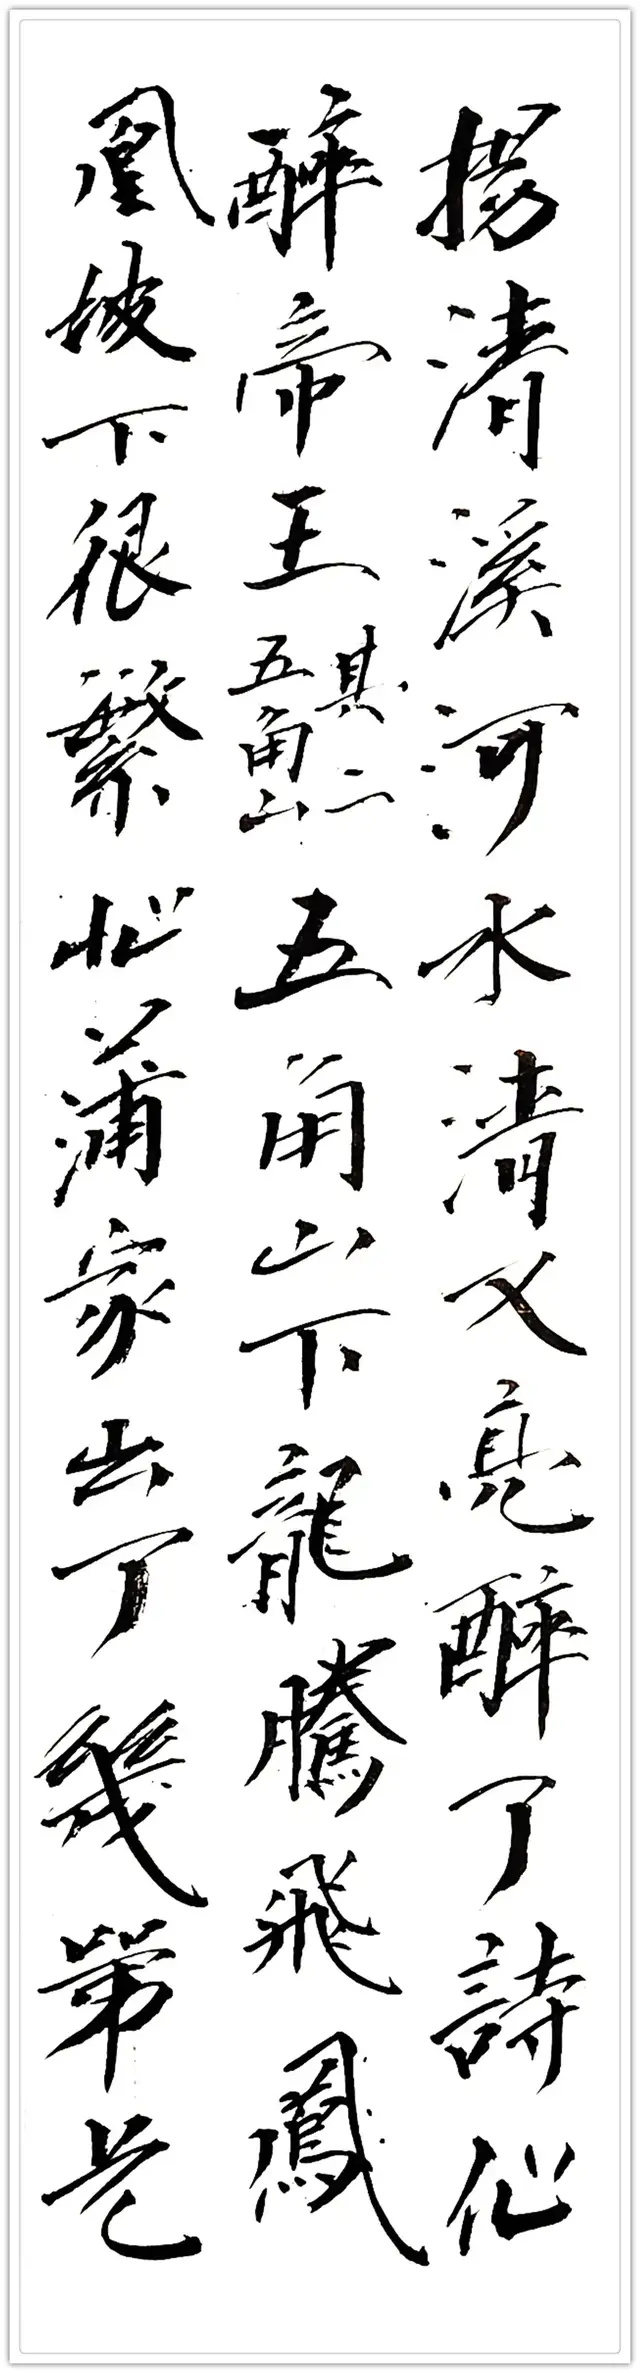 揚清溪河水清又亮醉了詩仙
醉帝王
其二
五角山
五角山下龍騰飛鳳
凰坡下很繁忙蒲家出了幾第